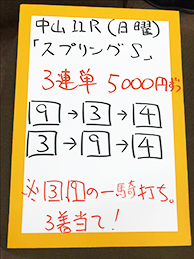 中山11R(日曜)
「スプリングS」
3連単 5000円ずつ
9→3→4
3→9→4
※39の一騎打ち。
3着当て!